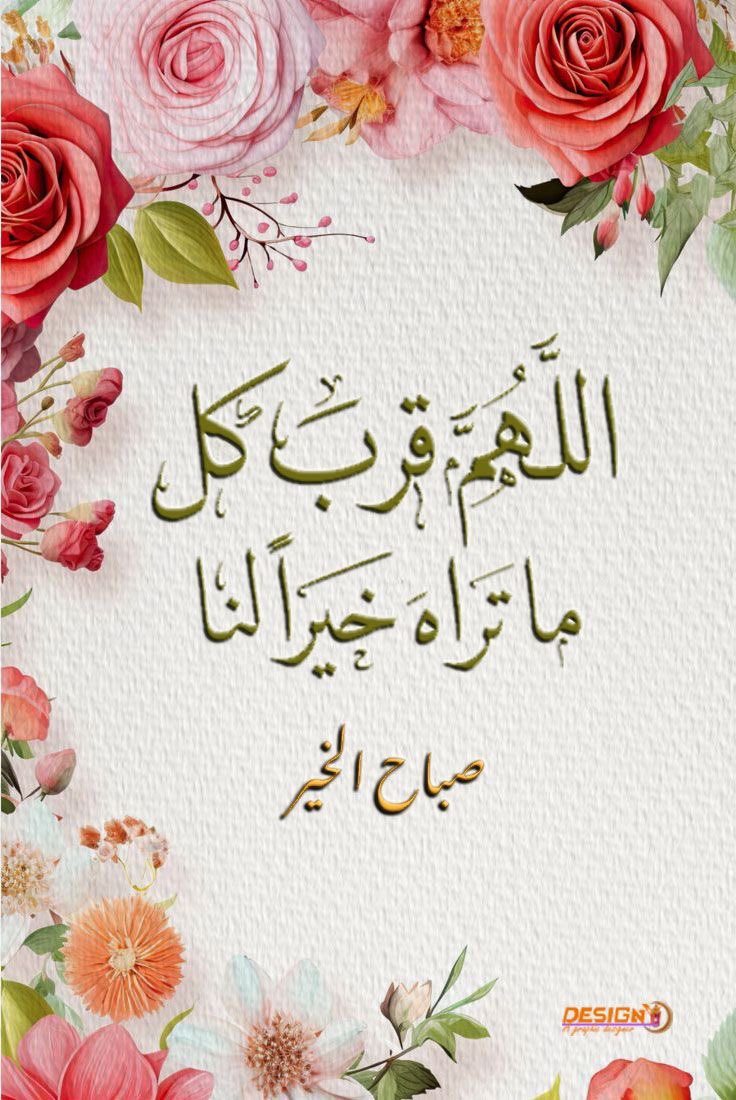 اللَّهُمَّ قربَ كل
ما تَراهَ خيَراً لنا
صباح الخير
DESIGN
A graphic designer